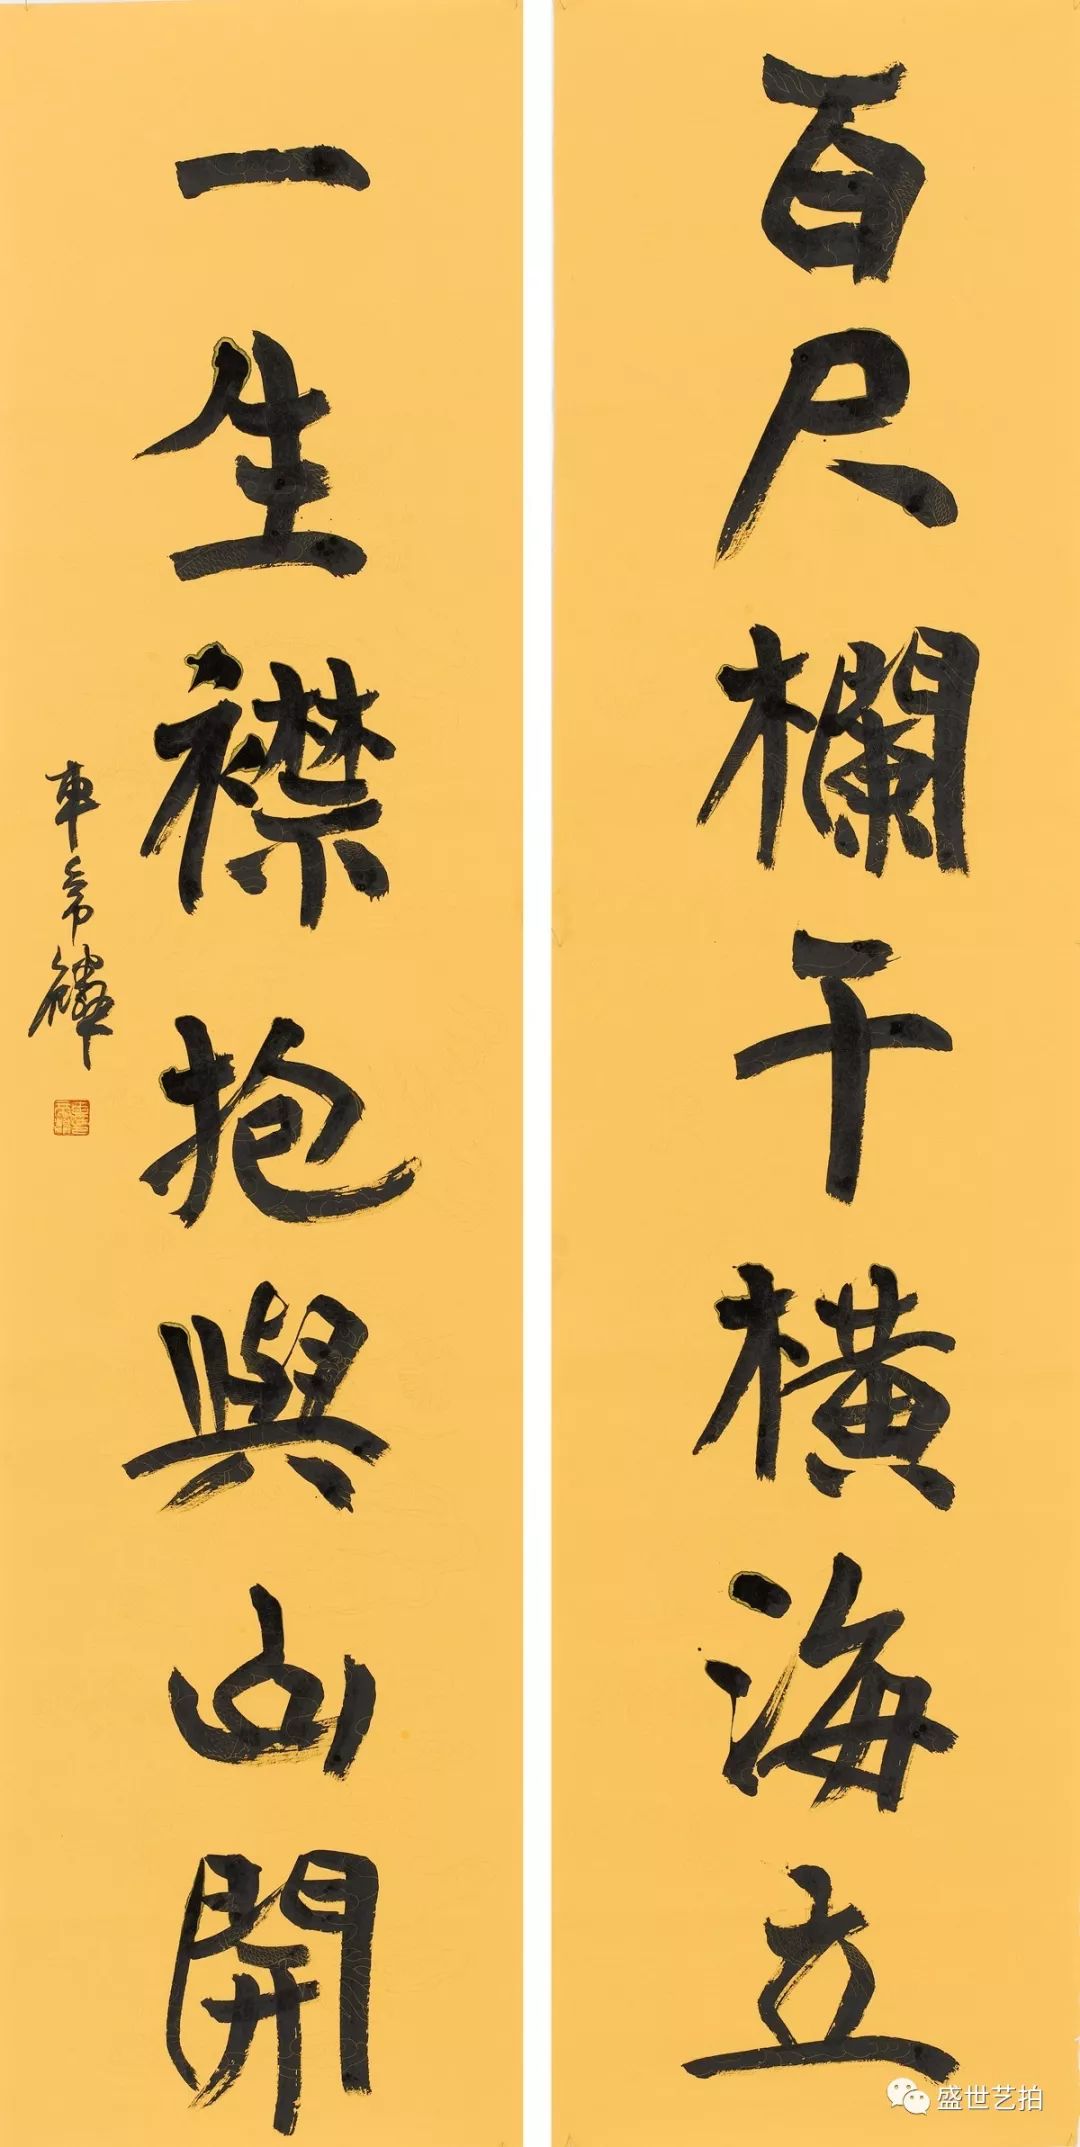 百尺欄干橫海立
一生襟抱與山開
盛世艺拍